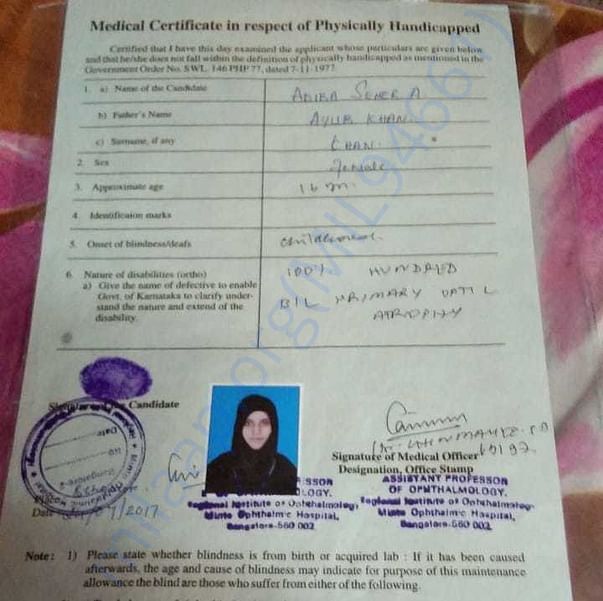 Medical Certificate in respect of Physically Handicapped
Certified that I have this day examined the applicant whose particulars are given below
and that he/she does not fall within the definition of physically handicapped as mentioned in the
Government Order No. SWL. 146 PHP 77, dated 7-11-1977.
1. a) Name of the Candidate ADIBA SEHER A
b) Father's Name AYUB KHAN.
c) Surname, if any KHAN.
2. Sex female
3. Approximate age 16
4. Identificaion marks
5. Onset of blindness/deafs
6. Nature of disabilities (ortho) 100% HUNDRED
a) Give the name of defective to enable
Govt. of Karnataka to clarify under-
stand the nature and extend of the
disability.
BIL PRIMARY OPTIC
ATROPHY
Candidate
Signature of Medical Officer
Designation, Office Stamp
ASSISTANT PROFESSOR
OF OPHTHALMOLOGY.
Regional Institute of Ophthalmology
Minto Ophthalmic Hospital,
Bangalore-560 002
SSOR
OLOGY.
Regional Institute of Ophthalmology
Minto Ophthalmic Hospital,
Bangalore-560 002
Place
Date /2017
Note : 1) Please state whether blindness is from birth or acquired lab : If it has been caused
afterwards, the age and cause of blindness may indicate for purpose of this maintenance
allowance the blind are those who suffer from either of the following.